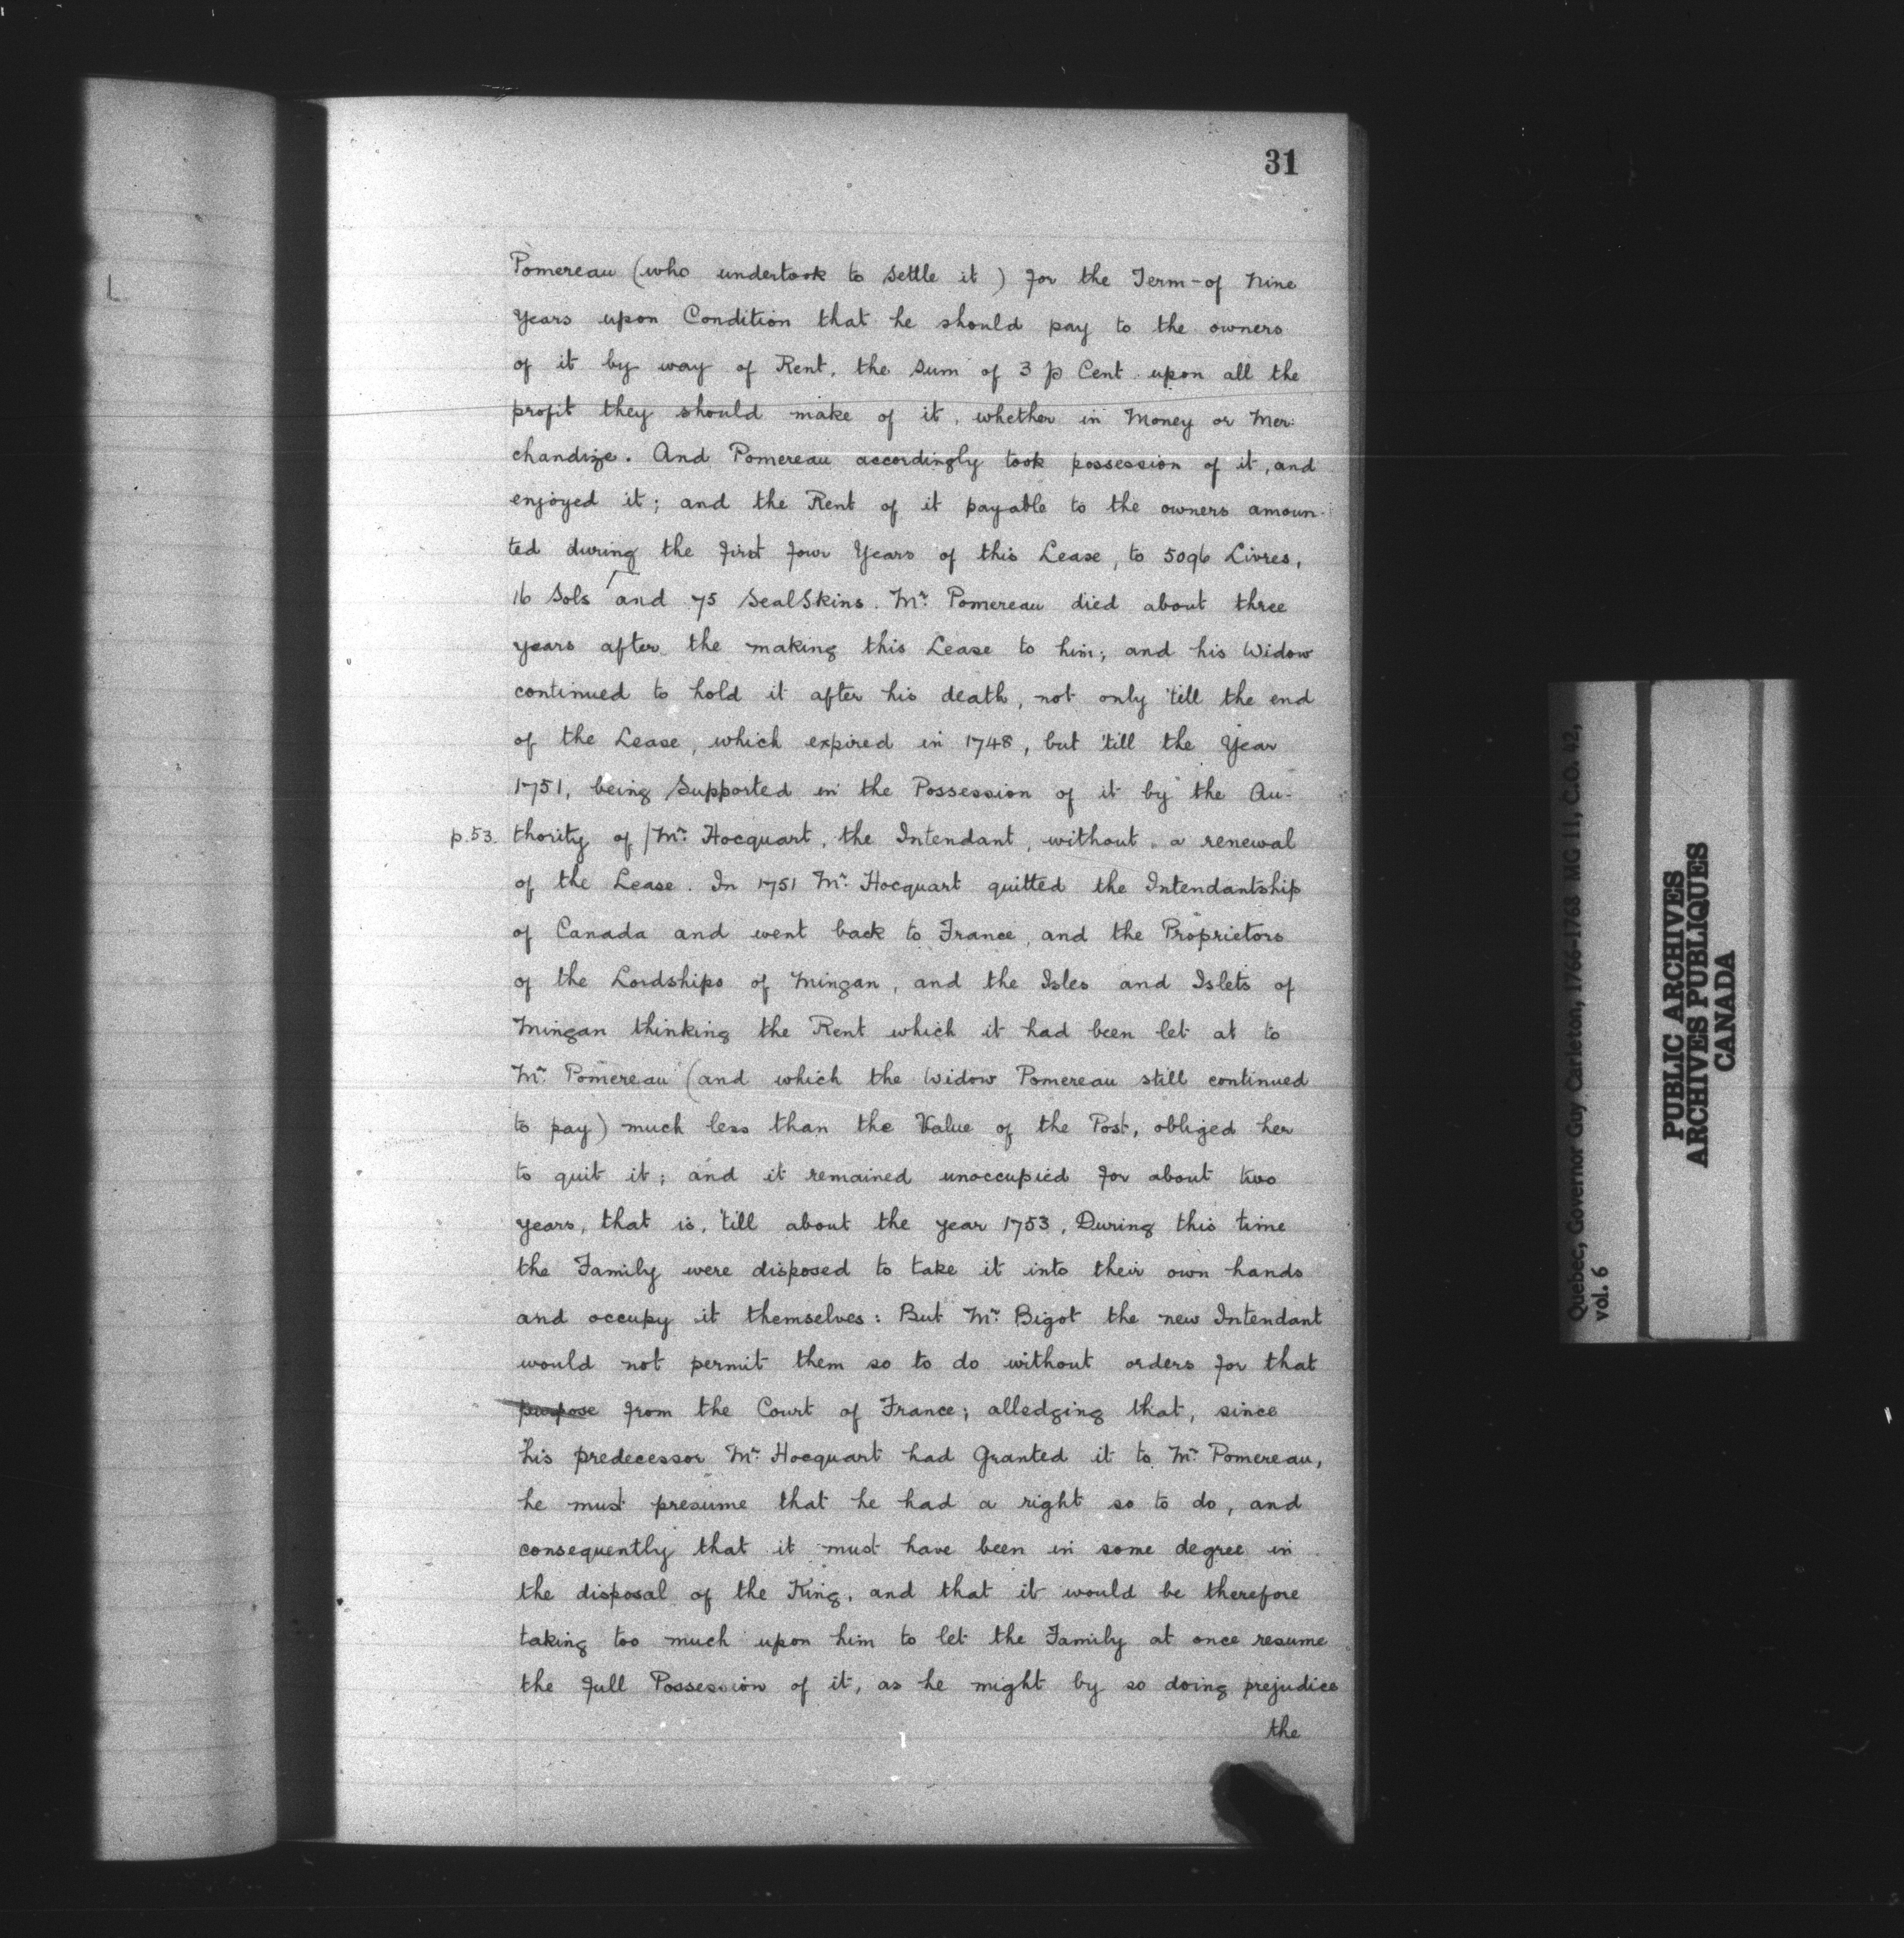 31
Pomereau (who undertook to settle it) for the Term-of Nine
Years upon Condition that he should pay to the owners
of it by way of Rent, the Sum of 3 p Cent upon all the
profit they should make of it, whether in Money or Mer:
chandize. And Pomereau accordingly took possession of it, and
enjoyed it; and the Rent of it payable to the owners amoun-
ted during the first four Years of this Lease, to 5096 Livres,
16 Sols and 75 SealSkins. Mr. Pomereau died about three
years after the making this Lease to him; and his Widow
continued to hold it after his death, not only 'till the end
of the Lease, which expired in 1748, but 'till the Year
1751, being Supported in the Possession of it by the Au-
p.53. thority of /Mr. Hocquart, the Intendant, without a renewal
of the Lease. In 1751 Mr. Hocquart quitted the Intendantship
of Canada and went back to France, and the Proprietors
of the Lordships of Mingan, and the Isles and Islets of
Mingan thinking the Rent which it had been let at to
Mr. Pomereau (and which the Widow Pomereau still continued
to pay) much less than the Value of the Post, obliged her
to quit it; and it remained unoccupied for about two
years, that is, 'till about the year 1753. During this time
the Family were disposed to take it into their own hands
and occupy it themselves: But Mr. Bigot the new Intendant
would not permit them so to do without orders for that
purpose from the Court of France; alledging that, since
his predecessor Mr. Hocquart had Granted it to Mr. Pomereau,
he must presume that he had a right so to do, and
consequently that it must have been in some degree in
the disposal of the King, and that it would be therefore
taking too much upon him to let the Family at once resume
the full Possession of it, as he might by so doing prejudice
the
Quebec, Governor Guy Carleton, 1766-1768 MG 11, C.O. 42,
vol. 6
PUBLIC ARCHIVES
ARCHIVES PUBLIQUES
CANADA